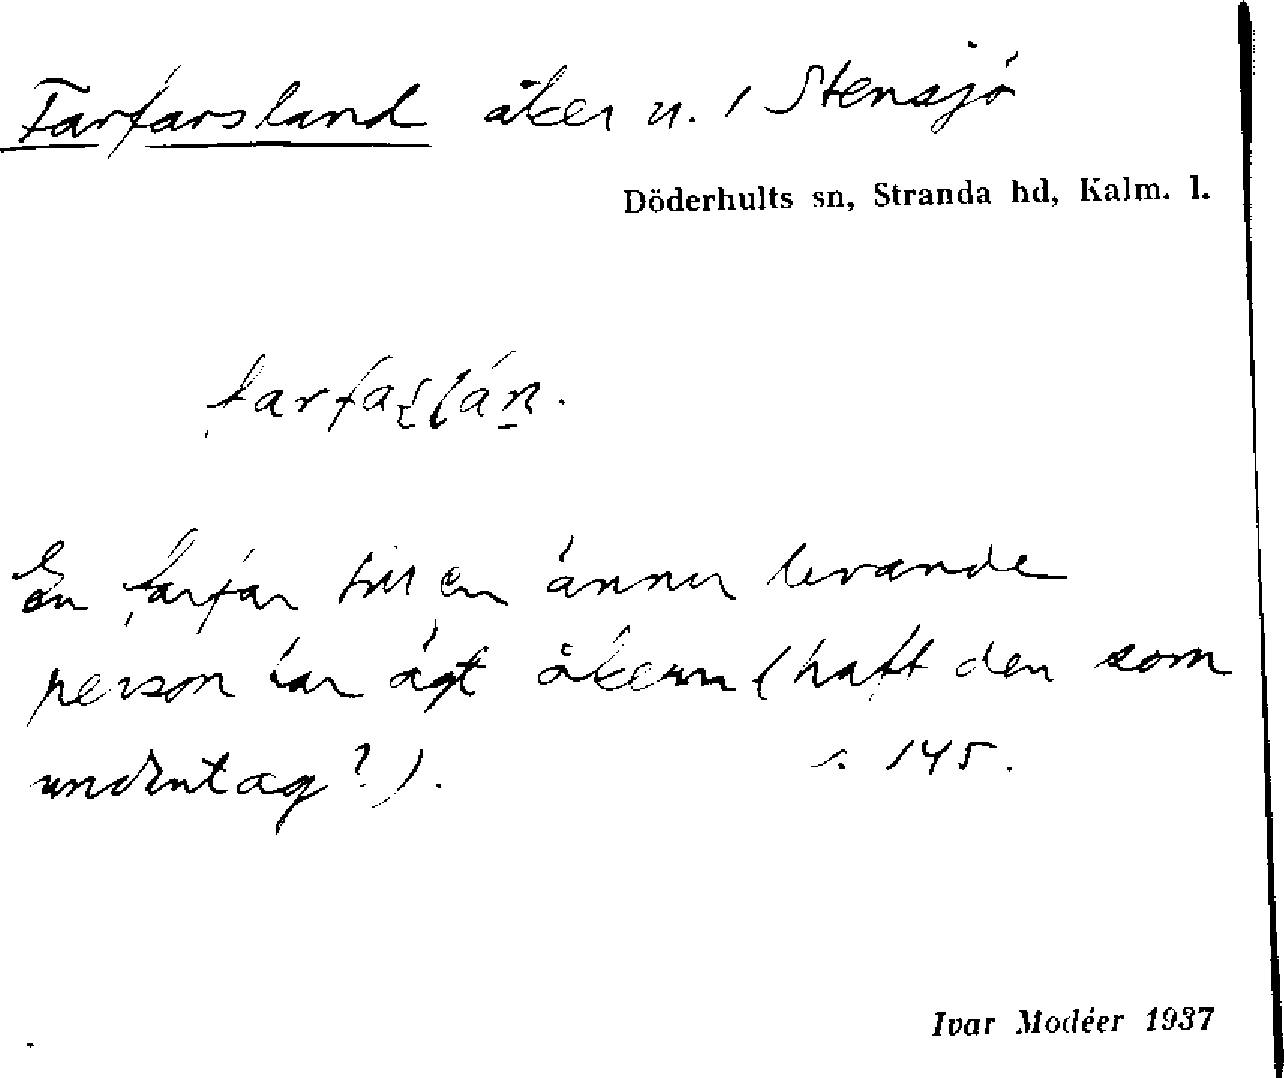 Farfarsland åker n. i Stensjö
Döderhults sn, Stranda hd, Kalm. l.
En farfar till en ännu levande
person har ägt åkern (haft den som
undentag?). s. 145.
Ivar Modéer 1937